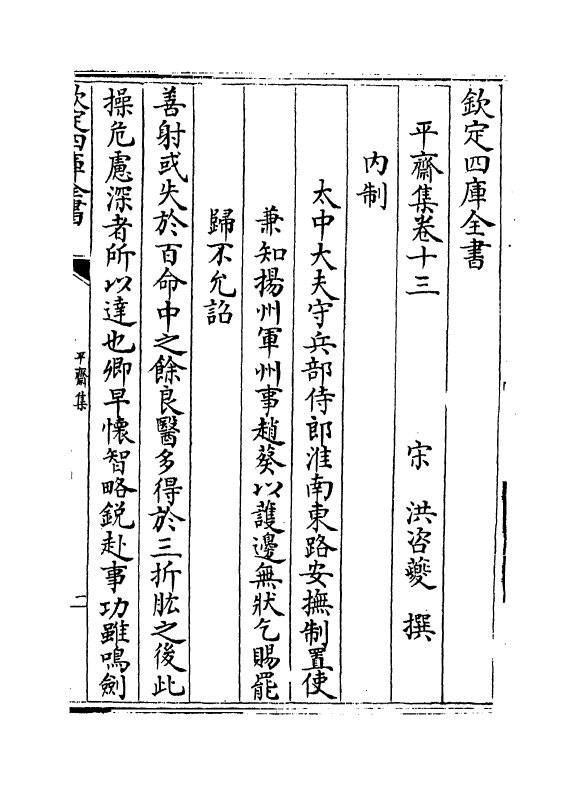 欽定四庫全書
平齋集卷十三
宋　洪咨夔　撰
内制
太中大夫守兵部侍郎淮南東路安撫制置使
兼知揚州軍州事趙葵以護邊無狀乞賜罷
歸不允詔
善射或失於百命中之餘良醫多得於三折肱之後此
操危慮深者所以達也卿早懷智略鋭赴事功雖鳴劍
欽定四庫全書
平齋集